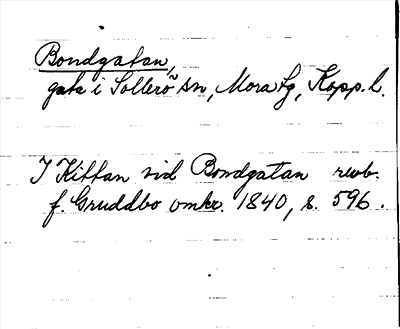 Bondgatan,
gata i Sollerö sn, Mora tg, Kopp. l.
I Kittan vid Bondgatan rewb.
f. Gruddbo omkr. 1840, s. 596.